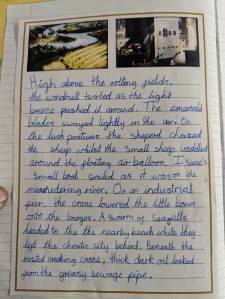 High above the rolling fields,
the windmill twirled as the light
breeze pushed it around. The emerald
blades swayed lightly in the air. On
the lush pastures the sheperd chased
the sheep whilst the small sheep waddled
around the floating air balloon. Isaac's
small boat sailed as it was on the
meandering river. On an industrial
pier, the crane lowered the little boxes
onto the barges. A swarm of Seagulls
headed to the the nearby beach while they
left the chaotic city behind. Beneath the
rusted creaking crane, thick dark oil leaked
from the greasy sewage pipe.